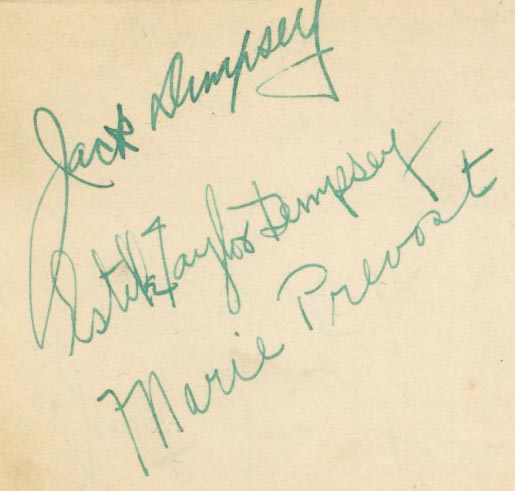 Jack Dempsey
Estelle Taylor Dempsey
Marie Prevost